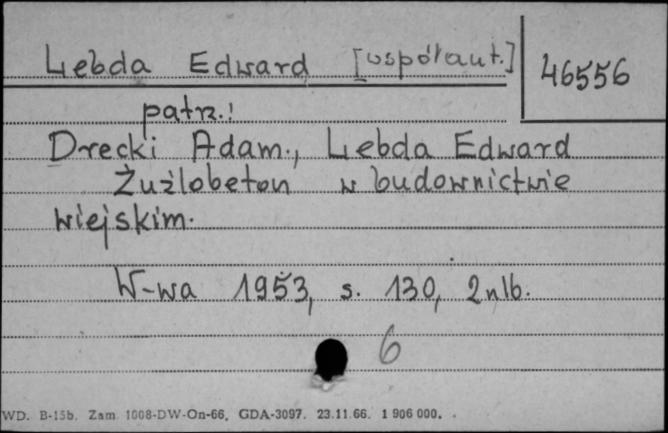 Lebda Edward [współaut.]
46556
patrz:
Drecki Adam., Lebda Edward
Żużlobeton w budownictwie
wiejskim.
W-wa 1953, s. 130, 2 nlb.
6
WD. B-15b. Zam. 1008-DW-On-66. GDA-3097. 23.11.66. 1 906 000.